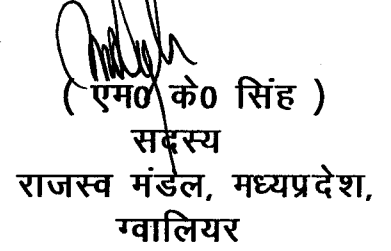 ( एम0 के0 सिंह )
सदस्य
राजस्व मंडल, मध्यप्रदेश,
ग्वालियर